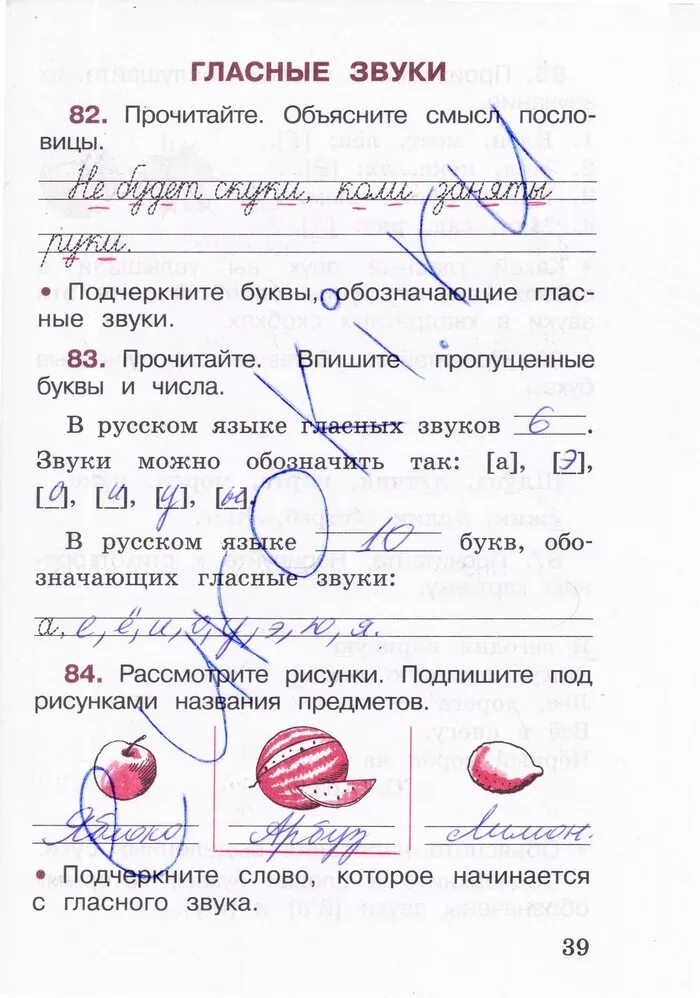 ГЛАСНЫЕ ЗВУКИ
82. Прочитайте. Объясните смысл посло-
вицы.
Не будет скуки, коли заняты
руки.
• Подчеркните буквы, обозначающие глас-
ные звуки.
83. Прочитайте. Впишите пропущенные
буквы и числа.
В русском языке гласных звуков 6.
Звуки можно обозначить так: [а], [э],
[о], [и], [у], [ы].
В русском языке 10 букв, обо-
значающих гласные звуки:
а, е, ё, и, о, у, э, ю, я.
84. Рассмотрите рисунки. Подпишите под
рисунками названия предметов.
Яблоко Арбуз Лимон.
• Подчеркните слово, которое начинается
с гласного звука.
39